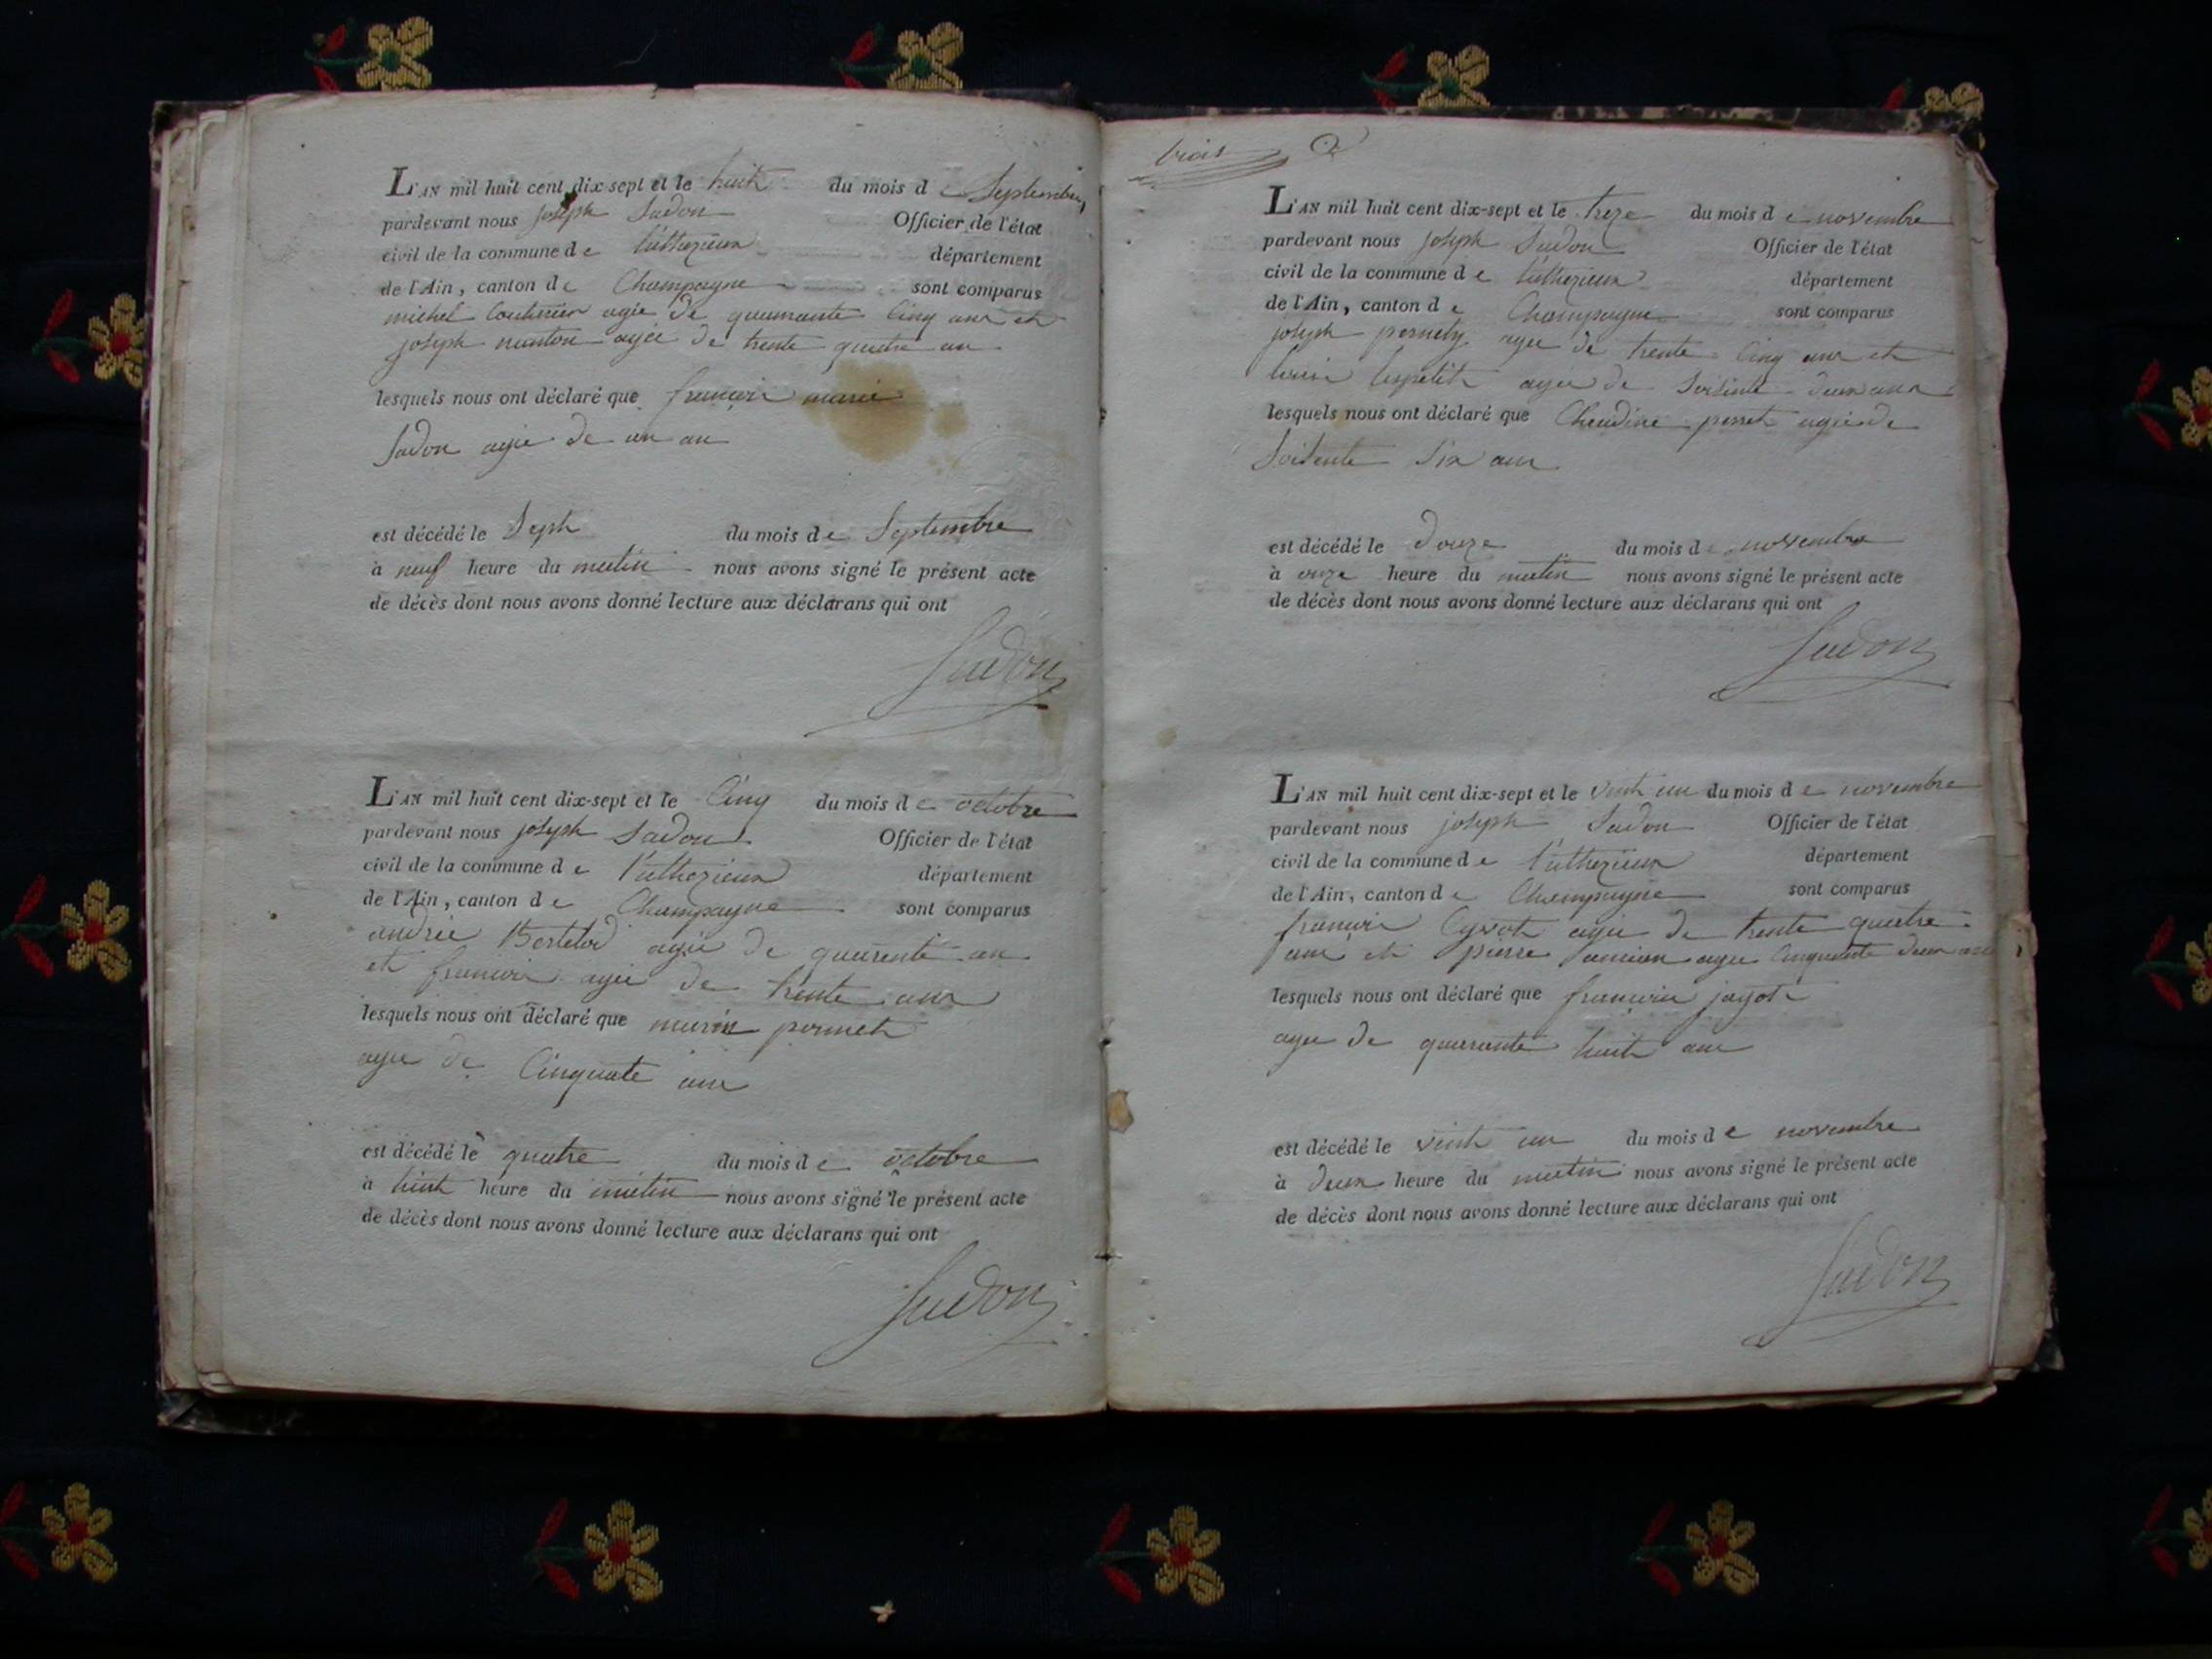 L'AN mil huit cent dix-sept et le huit du mois de Septembre
pardevant nous joseph Sudon Officier de l'état
civil de la commune de luthezieux département
de l'Ain, canton de Champagne sont comparus
michel Couturier agée de quarante Cinq ans et
joseph agée de trente quatre an
lesquels nous ont déclaré que françois marie
Sudon agée de un an
est décédé le Sept du mois de Septembre
à neuf heure du matin nous avons signé le présent acte
de décès dont nous avons donné lecture aux déclarans qui ont
Sudon
L'AN mil huit cent dix-sept et le Cinq du mois de octobre
pardevant nous joseph Sudon Officier de l'état
civil de la commune de luthezieux département
de l'Ain, canton de Champagne sont comparus
andrée Bertelod agée de quarente an
et françois agée de trente ans
lesquels nous ont déclaré que
agee de Cinquate ans
est décédé le quatre du mois de octobre
à huit heure du matin nous avons signé le présent acte
de décès dont nous avons donné lecture aux déclarans qui ont
Sudon
trois
L'AN mil huit cent dix-sept et le treze du mois de novembre
pardevant nous joseph Sudon Officier de l'état
civil de la commune de luthezieux département
de l'Ain, canton de Champagne sont comparus
joseph agee de trente Cinq ans et
louis agee de Soisente deux ans
lesquels nous ont déclaré que Claudine perret agée de
Soisente Six ans
est décédé le douze du mois de novembre
à onze heure du matin nous avons signé le présent acte
de décès dont nous avons donné lecture aux déclarans qui ont
Sudon
L'AN mil huit cent dix-sept et le vint un du mois de novembre
pardevant nous joseph Sudon Officier de l'état
civil de la commune de luthezieux département
de l'Ain, canton de Champagne sont comparus
françois agée de trente quatre
ans et pierre agee Cinquante deux ans
lesquels nous ont déclaré que françois jagot
agee de quarante huit ans
est décédé le vint un du mois de novembre
à deux heure du matin nous avons signé le présent acte
de décès dont nous avons donné lecture aux déclarans qui ont
Sudon